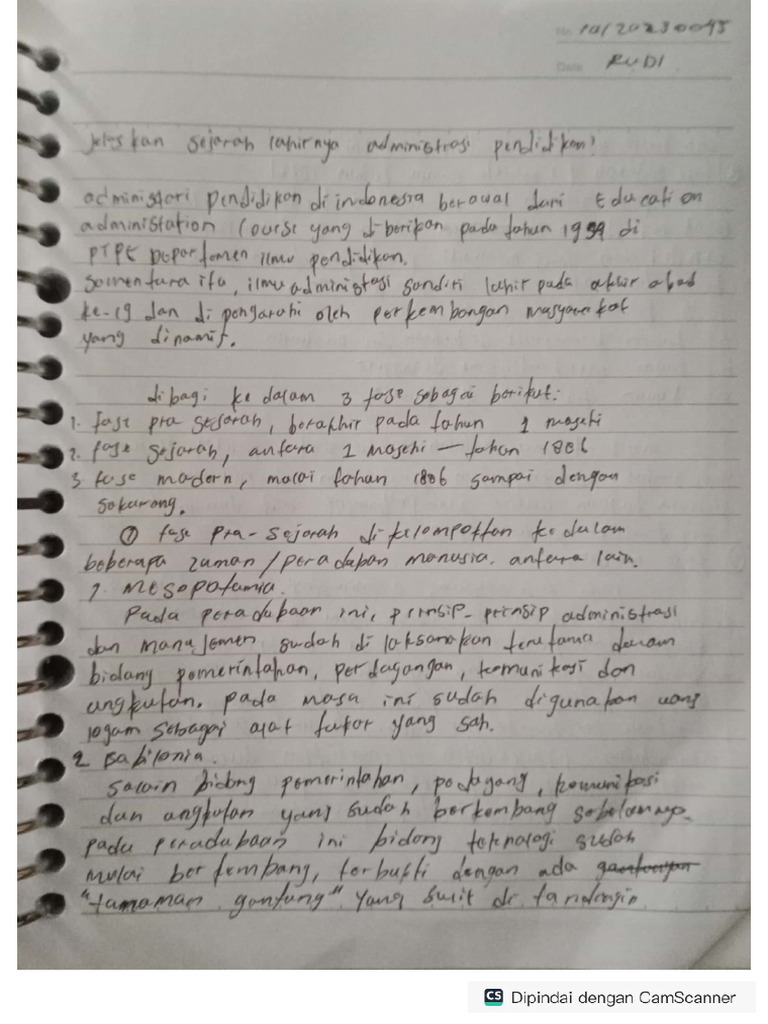 No 10/20230045
Date RUDI
jelaskan sejarah lahirnya administrasi pendidikan!
administari pendidikan di indonesia berawal dari Education
administation Course yang diberikan pada tahun 1959 di
PTPG Departemen ilmu pendidikan.
Sementara itu, ilmu administrasi sendiri lahir pada akhir abad
ke-19 dan di pengaruhi oleh perkembangan masyarakat
yang dinamis.
dibagi ke dalam 3 fase sebagai berikut:
1. fase pra sejarah, berakhir pada tahun 1 masehi
2. fase sejarah, antara 1 Masehi - tahun 1886
3 fase modern, mulai tahun 1886 sampai dengan
sekarang.
① fase pra-sejarah di kelompokkan ke dalam
beberapa zaman/peradaban manusia. antara lain.
1. Mesopotamia.
Pada peradabaan ini, prinsip-prinsip administrasi
dan manajemen sudah di laksanakan terutama dalam
bidang pemerintahan, perdagangan, komunikasi dan
angkutan. pada masa ini sudah digunakan uang
logam sebagai alat tukar yang sah.
2 Babilonia.
Selain bidang pemerintahan, pedagang, komunikasi
dan angkutan yang sudah berkembang sebelumnya.
pada peradabaan ini bidang teknologi sudah
mulai berkembang, terbukti dengan ada
"tamaman gantung" yang sulit di tandingin
CS Dipindai dengan CamScanner